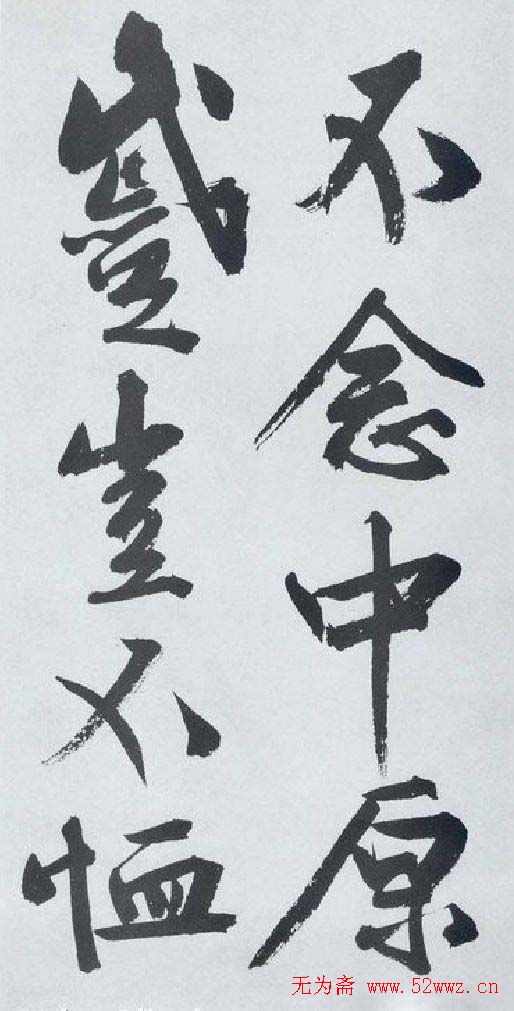 不念中原
蹙豈不恤
无为斋 www.52wwz.cn